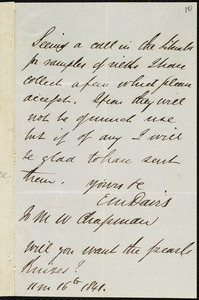 10
Seeing a call in the Liberator
for samples of                I have
collect a few which please
accept. I fear they will
not be of much use
but if of any I will
be glad to have sent
them.
Yours &c
E M Davis
To M W Chapman
Will you want the pearl
Knives?
16th